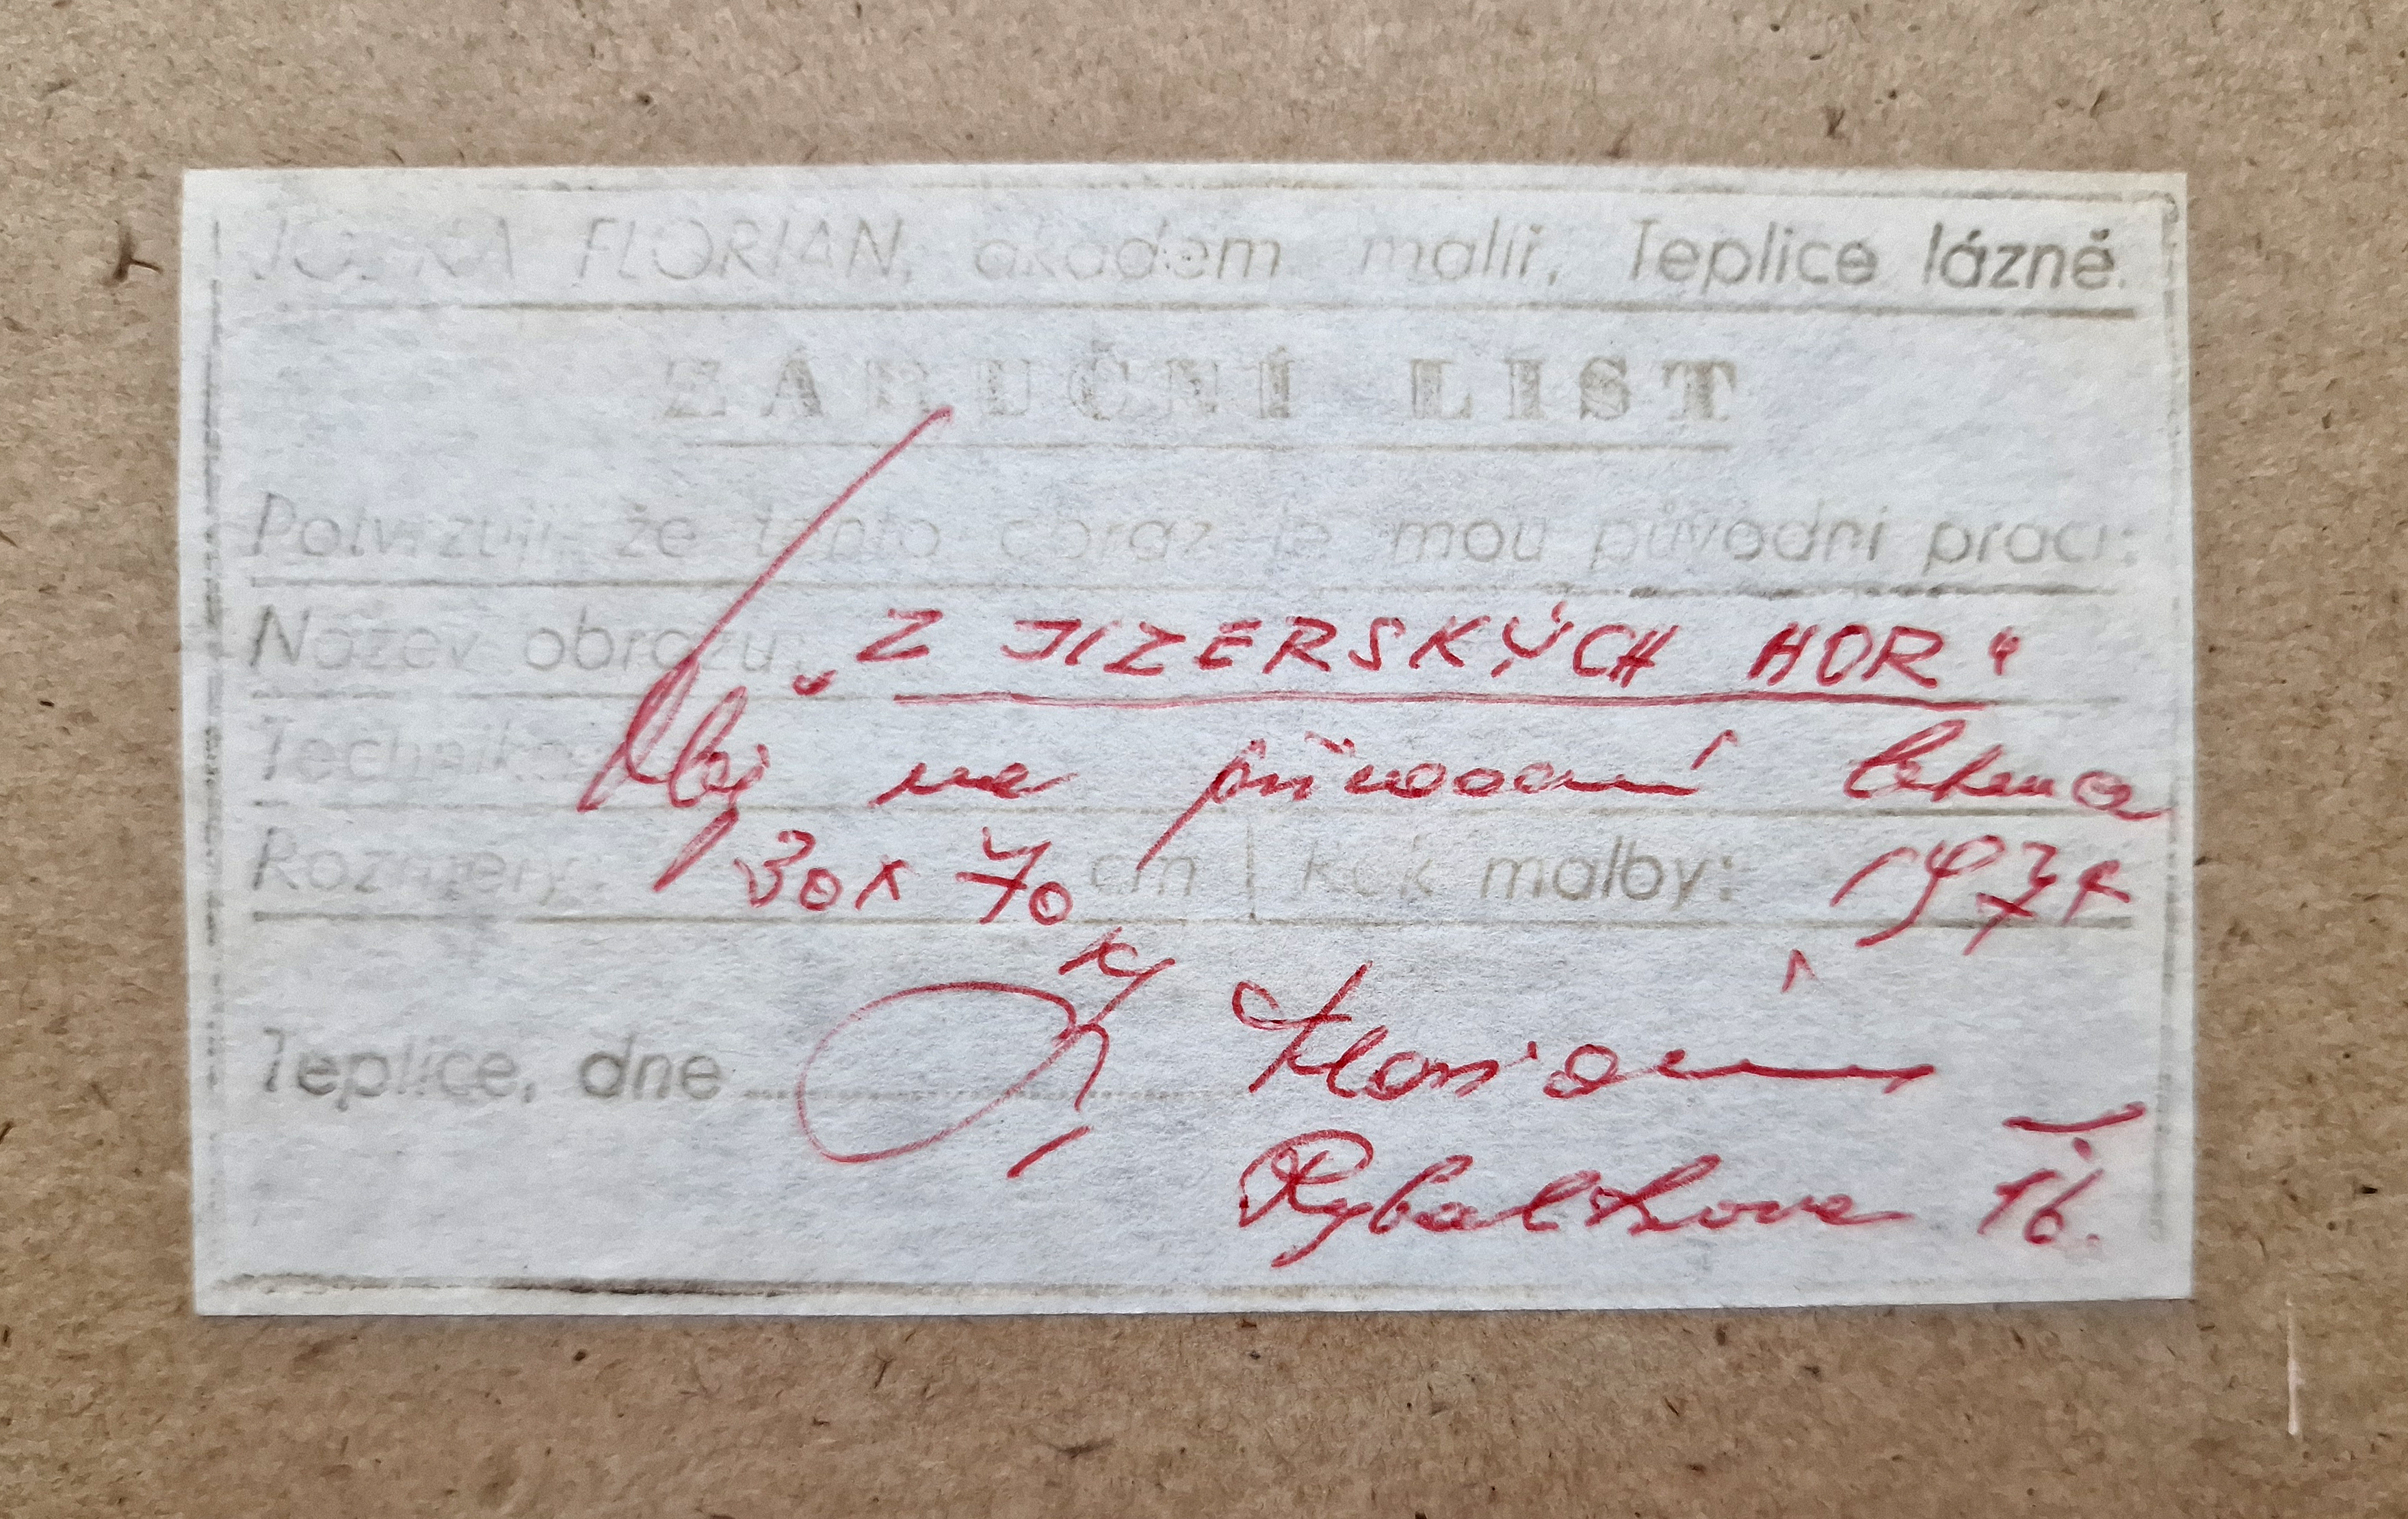 FLORIAN, akadem malíř, Teplice lázně.
ZÁRUČNÍ LIST
Potvrzuji, že tento obraz je mou původní prací:
Název obrazu: „Z JIZERSKÝCH HOR“
Technika: Olej na původní
Rozměry: 30 x 70 cm Rok malby: 1974
Teplice, dne Florian
Rybalkova 16.